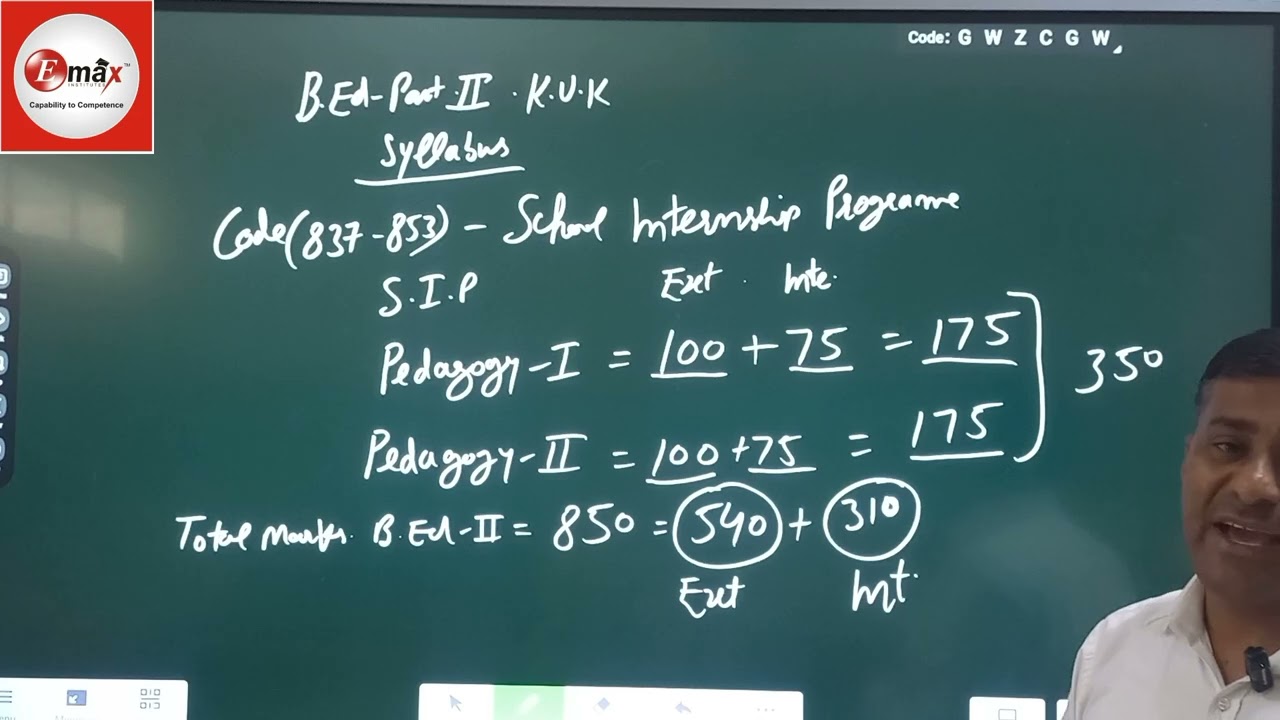 Emax™
INSTITUTES
Capability to Competence
Code: G W Z C G W
B.Ed-Part.II . K.U.K
Syllabus
Code(837-853) - School Internship Programme
S.I.P Ext . Inte.
Pedagogy-I = 100 + 75 = 175
350
Pedagogy-II = 100 + 75 = 175
Total Marks. B.Ed-II = 850 = 540 + 310
Ext Int.